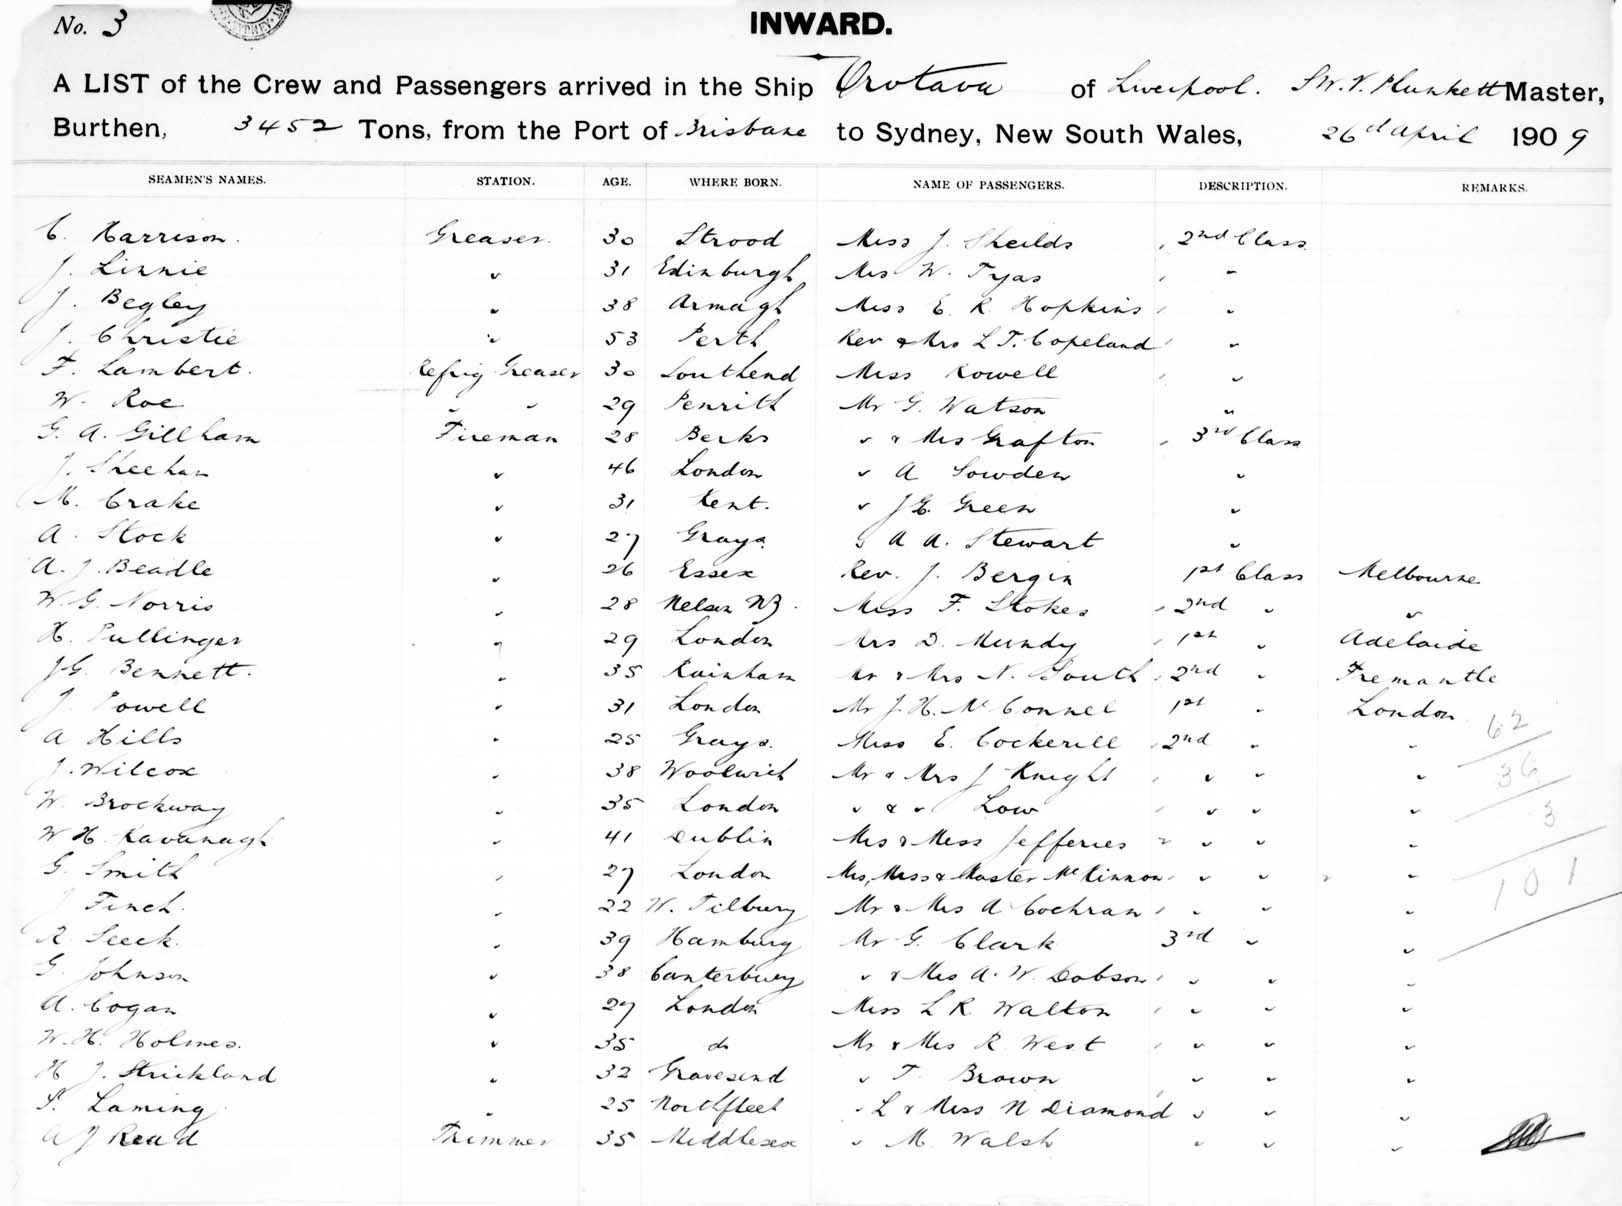 No. 3
INWARD.
A LIST of the Crew and Passengers arrived in the Ship Orotava of Liverpool. Plunkett Master,
Burthen, 3452 Tons, from the Port of Brisbane to Sydney, New South Wales, 26d April 1909
SEAMEN'S NAMES. STATION. AGE. WHERE BORN. NAME OF PASSENGERS. DESCRIPTION. REMARKS.
C. Harrison. Greaser. 30 Strood Miss J. Sheilds 2nd Class
J. Linnie " 31 Edinburgh Mrs W. Tyas "
J. Begley " 38 Armagh Miss E. R. Hopkins "
J. Christie " 53 Perth Rev & Mrs L T. Copeland "
F. Lambert. Refrig Greaser 30 Southend Miss Rowell "
W. Roe " " 29 Penrith Mr G. Watson "
G. A. Gillham Fireman 28 Berks " & Mrs Grafton 3rd Class
J. Sheehan " 46 London " A Sowden "
M. Crake " 31 Kent. " J E. Green "
A. Stock " 27 Grays " A A. Stewart "
A. J. Beadle " 26 Essex Rev. J. Bergin 1st Class Melbourne
W. G. Norris " 28 Nelson NZ. Miss F. Stokes 2nd " "
H. Pullinger " 29 London Mrs D. Mundy 1st " Adelaide
J G. Bennett. " 35 Rainham Mr & Mrs N. South 2nd " Fremantle
J. Powell " 31 London Mr J. H. McConnel 1st " London
A Hills " 25 Grays. Miss E. Cockerill 2nd " " 62
J. Wilcox " 38 Woolwich Mr & Mrs J Knight " " " 36
W. Brockway " 35 London " & " Low " " " 3
W H. Kavanagh " 41 Dublin Mrs & Miss Jefferies " " "
G. Smith " 27 London Mrs, Miss & Master McKinnon " " " 101
J Finch. " 22 W. Tilbury Mr & Mrs A Cochran " " "
R. Seeck. " 39 Hamburg Mr G. Clark 3rd " "
G. Johnson " 38 Canterbury " & Mrs A. W. Dobson " " "
A. Cogan " 27 London Miss L R. Walton " " "
W. H. Holmes. " 35 do Mr & Mrs R. West " " "
H J. Strickland " 32 Gravesend " T. Brown " " "
Laming " 25 Northfleet " L & Miss N Diamond " " "
A J Read Trimmer 35 Middlesex " M. Walsh " " "